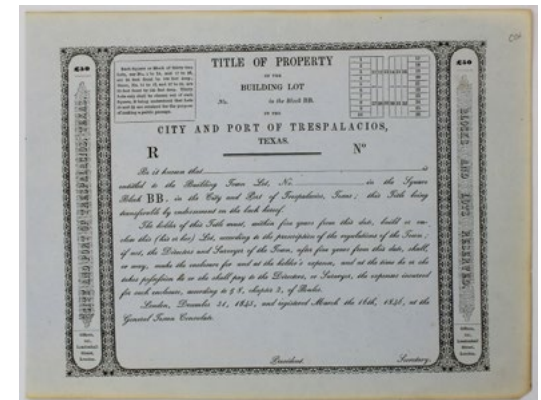 £50
£50
TITLE OF PROPERTY
OF THE
BUILDING LOT
No. in the Block BB.
IN THE
CITY AND PORT OF TRESPALACIOS,
TEXAS.
R Nº
Be it known that is
entitled to the Building Town Lot, No. in the Square
Block BB. in the City and Port of Trespalacios, Texas; this Title being
transferable by endorsement on the back hereof.
The holder of this Title must, within five years from this date, build or en-
close this (his or her) Lot, according to the prescription of the regulations of the Town;
if not, the Directors and Surveyor of the Town, after five years from this date, shall,
or may, make the enclosure for and at the holder's expense, and at the time he or she
takes possession he or she shall pay to the Directors, or Surveyor, the expenses incurred
for such enclosure, according to § 8, chapter 2, of Rules.
London, December 31, 1845, and registered March the 16th, 1846, at the
General Texan Consulate.
President. Secretary.
CITY AND PORT OF TRESPALACIOS, TEXAS.
BLOCKS AND LOTS RESERVED.
Offices,
Leadenhall
Street,
London.
Offices,
Leadenhall
Street,
London.